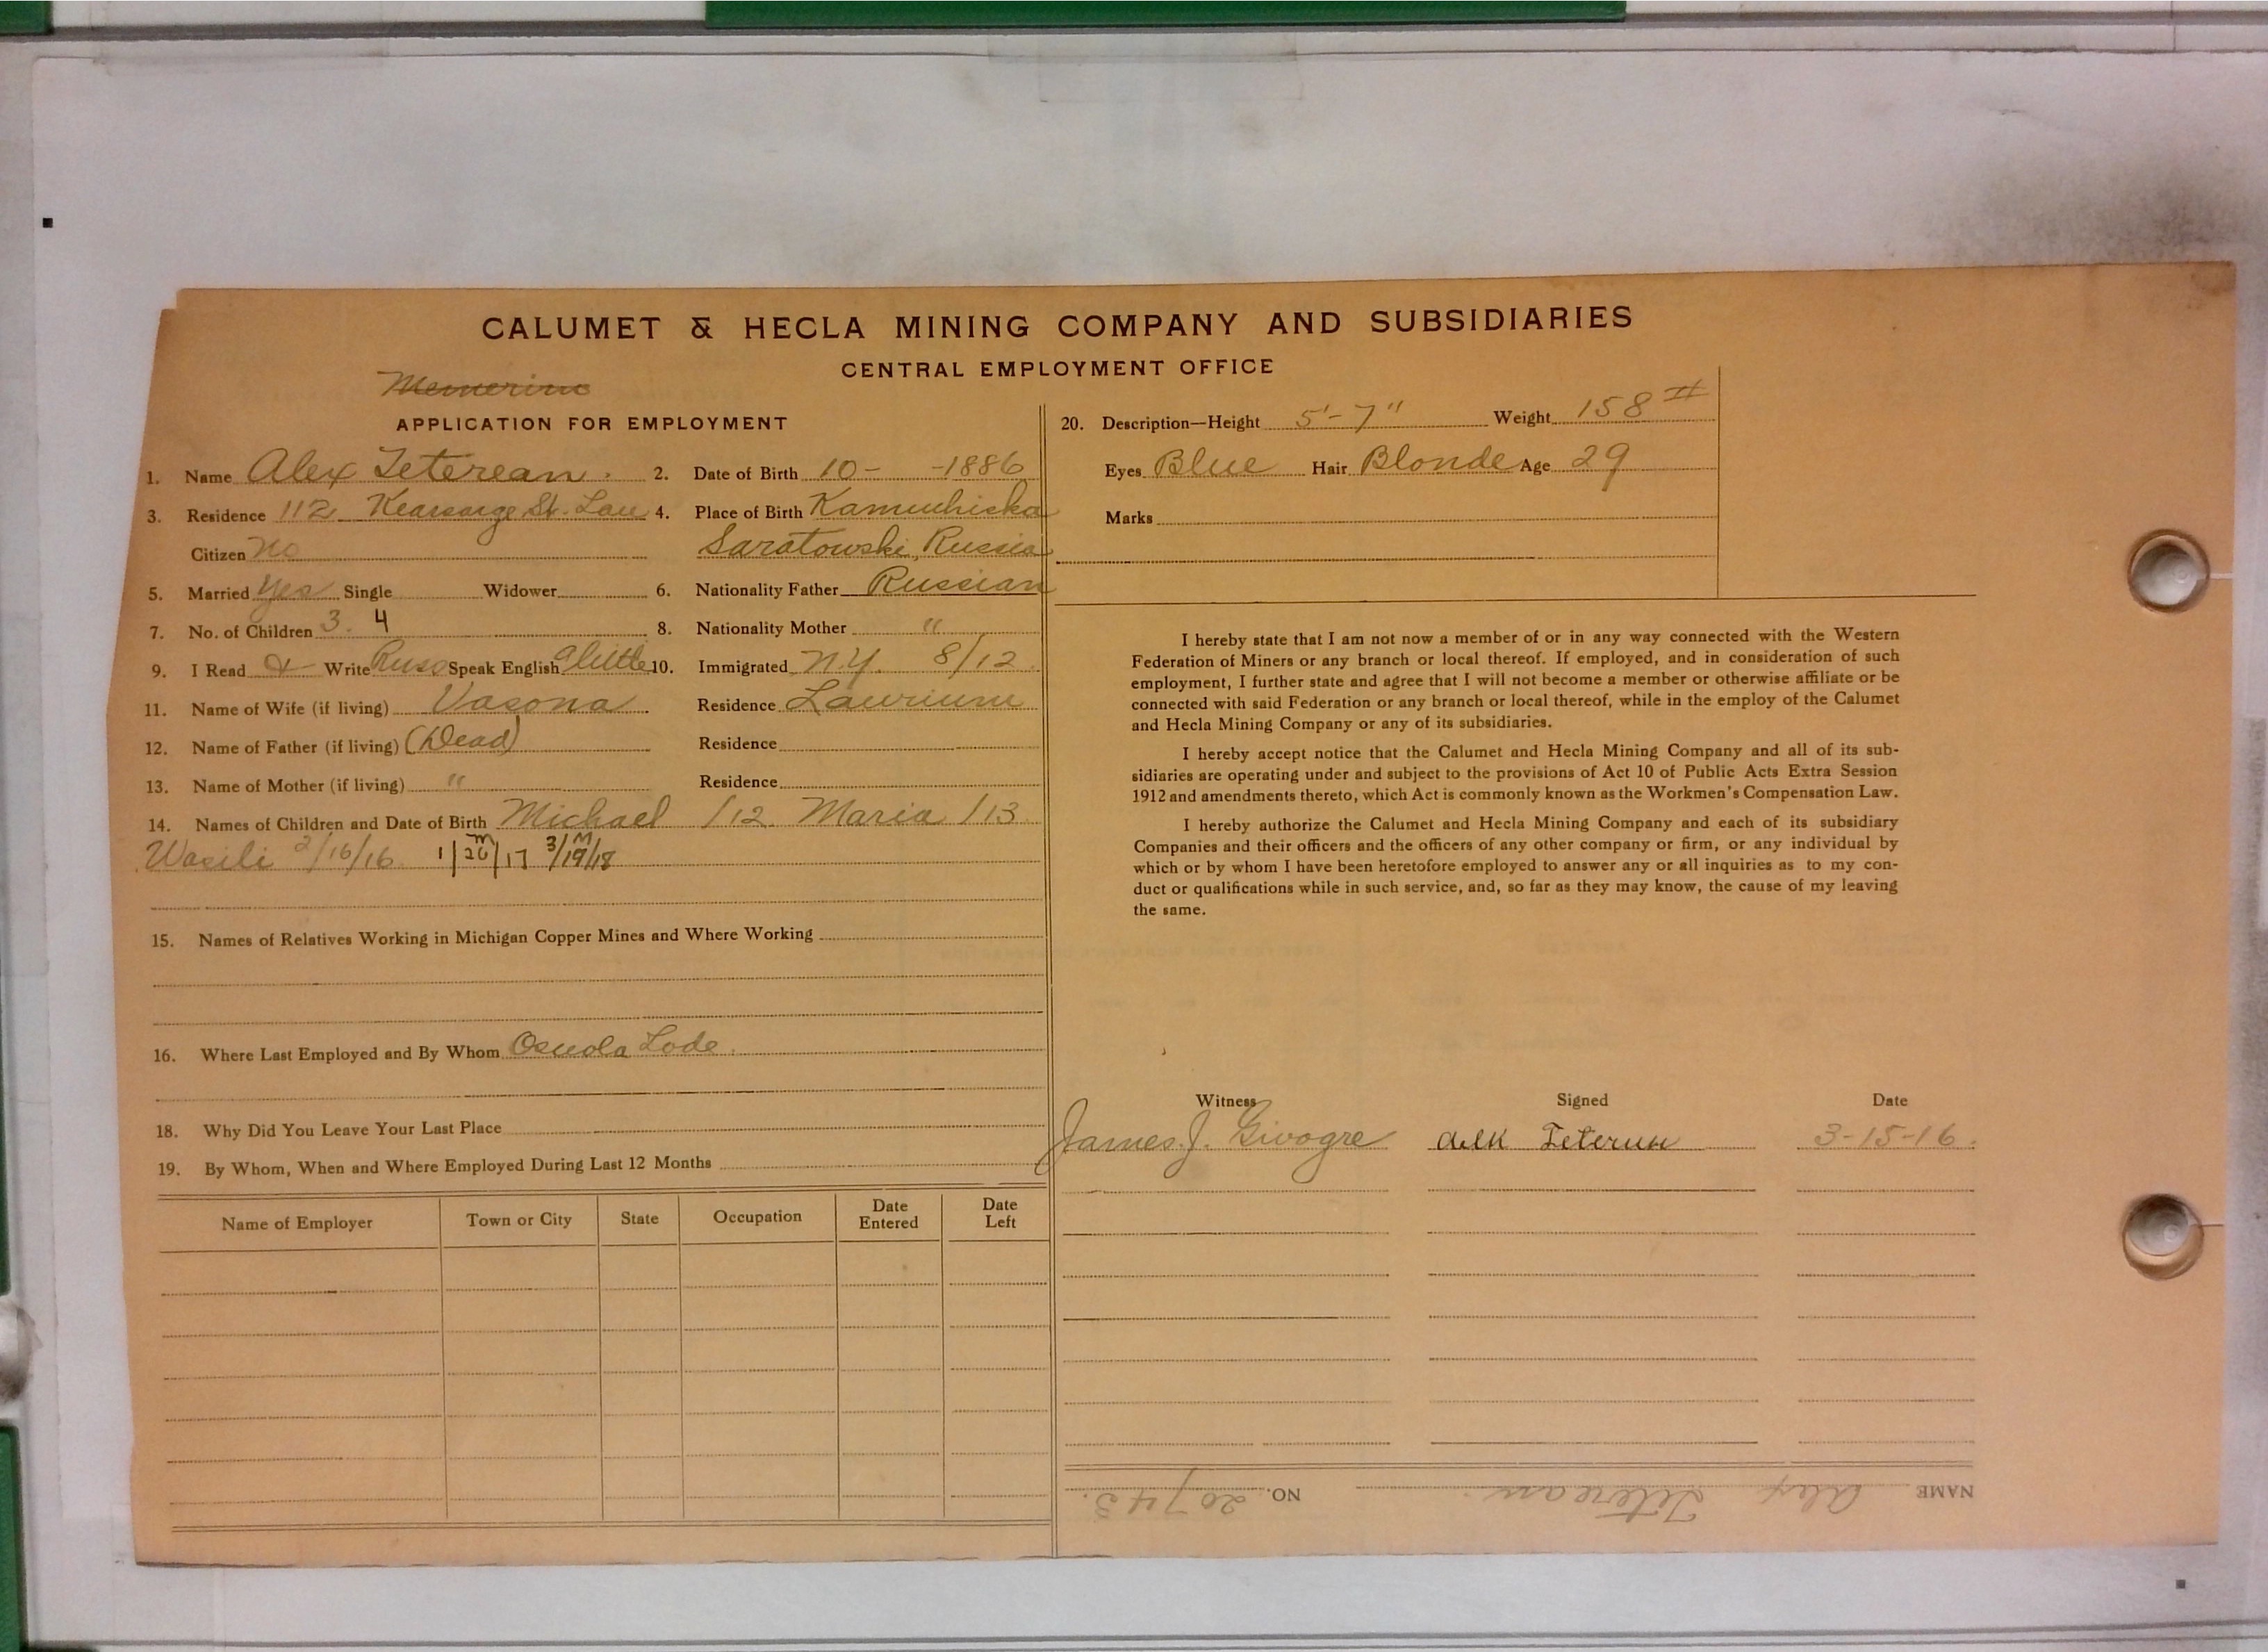 CALUMET & HECLA MINING COMPANY AND SUBSIDIARIES
CENTRAL EMPLOYMENT OFFICE
APPLICATION FOR EMPLOYMENT
1. Name Alex Teterean. 2. Date of Birth 10- -1886
3. Residence 112 Kearsarge St. Lau 4. Place of Birth
Citizen No Saratowski, Russia
5. Married Yes Single Widower 6. Nationality Father Russian
7. No. of Children 3. 4 8. Nationality Mother "
9. I Read & Write Russ Speak English a little 10. Immigrated N.Y. 8/12.
11. Name of Wife (if living) Vasona Residence Laurium
12. Name of Father (if living) (Dead) Residence
13. Name of Mother (if living) " Residence
14. Names of Children and Date of Birth Michael /12. Maria /13
Wasili 2/16/16. 1/26/17 M 3/19/18 M
15. Names of Relatives Working in Michigan Copper Mines and Where Working
16. Where Last Employed and By Whom Osceola Lode.
18. Why Did You Leave Your Last Place
19. By Whom, When and Where Employed During Last 12 Months
Name of Employer Town or City State Occupation Date Entered Date Left
20. Description—Height 5'-7" Weight 158 #
Eyes Blue Hair Blonde Age 29
Marks
I hereby state that I am not now a member of or in any way connected with the Western
Federation of Miners or any branch or local thereof. If employed, and in consideration of such
employment, I further state and agree that I will not become a member or otherwise affiliate or be
connected with said Federation or any branch or local thereof, while in the employ of the Calumet
and Hecla Mining Company or any of its subsidiaries.
I hereby accept notice that the Calumet and Hecla Mining Company and all of its sub-
sidiaries are operating under and subject to the provisions of Act 10 of Public Acts Extra Session
1912 and amendments thereto, which Act is commonly known as the Workmen's Compensation Law.
I hereby authorize the Calumet and Hecla Mining Company and each of its subsidiary
Companies and their officers and the officers of any other company or firm, or any individual by
which or by whom I have been heretofore employed to answer any or all inquiries as to my con-
duct or qualifications while in such service, and, so far as they may know, the cause of my leaving
the same.
Witness Signed Date
James J. Givogre 3-15-16.
NAME Alex Teterean. NO. 20743.